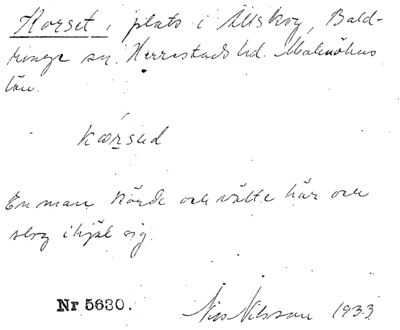 Korset, plats i Allskog, Bald-
ringe sn. Herrestads hd. Malmöhus
län.
Kå̄rsed
En man körde och välte här och
slog ihjäl sig.
Nr 5630. Nils Nilsson 1933